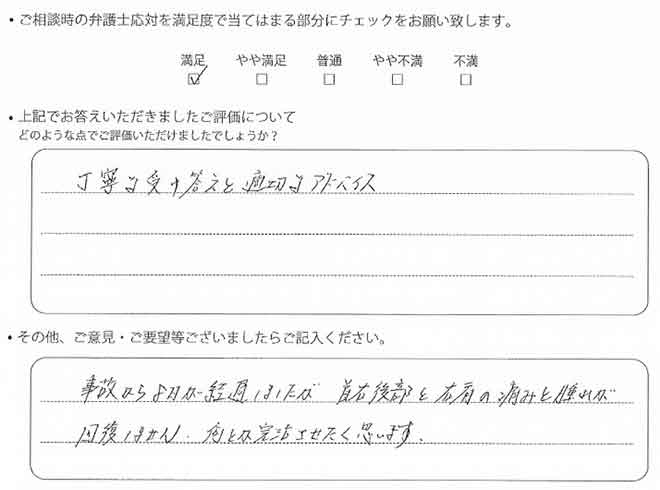 ・ご相談時の弁護士応対を満足度で当てはまる部分にチェックをお願い致します。
満足 やや満足 普通 やや不満 不満
・上記でお答えいただきましたご評価について
どのような点でご評価いただけましたでしょうか？
丁寧な受け答えと適切なアドバイス
・その他、ご意見・ご要望等ございましたらご記入ください。
事故から 経過しましたが 首右後部と右肩の痛みと腫れが
回復しません。何とか完治させたく思います。